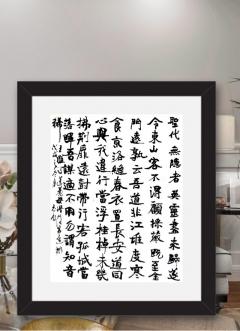 聖代無隱者英靈盡來歸遂
令東山客不得顧採薇既至金
門遠孰云吾道非江淮度寒
食京洛縫春衣置長安道同
心與我違行當浮桂棹未幾
拂荊扉遠樹帶行客孤城當
落暉吾謀適不用勿謂知音
稀